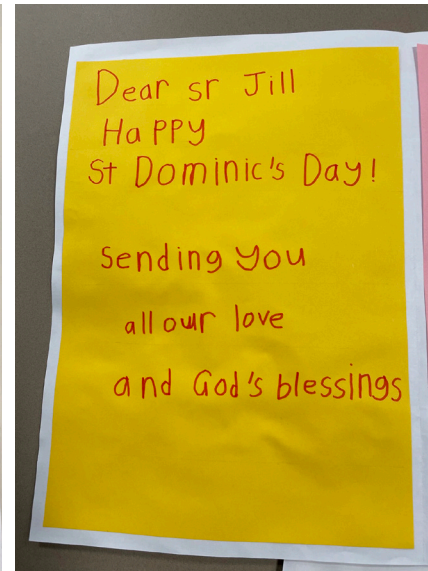 Dear sr Jill
Happy
St Dominic's Day!
Sending you
all our love
and God's blessings